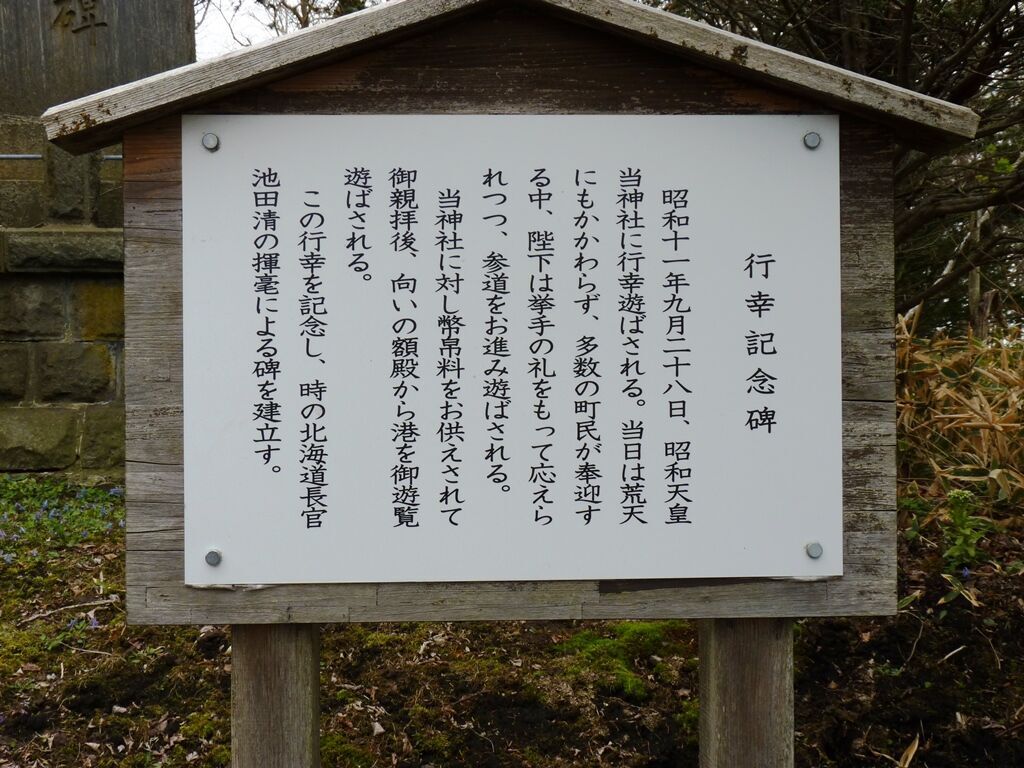 碑
行幸記念碑
昭和十一年九月二十八日、昭和天皇
当神社に行幸遊ばされる。当日は荒天
にもかかわらず、多数の町民が奉迎す
る中、陛下は挙手の礼をもって応えら
れつつ、参道をお進み遊ばされる。
当神社に対し幣帛料をお供えされて
御親拝後、向いの額殿から港を御遊覧
遊ばされる。
この行幸を記念し、時の北海道長官
池田清の揮毫による碑を建立す。